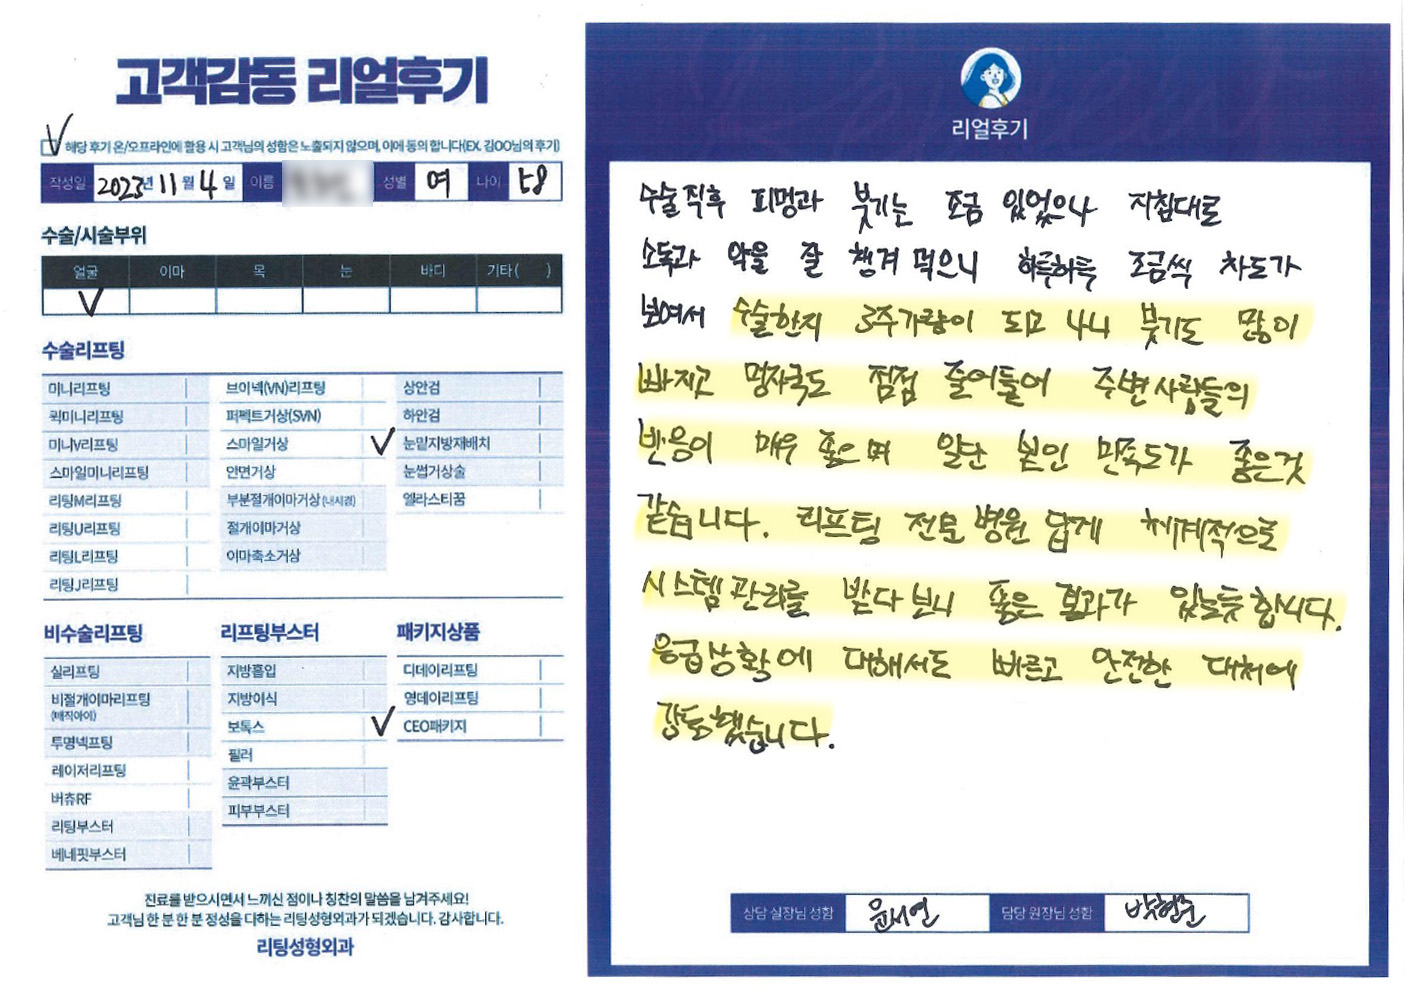 고객감동 리얼후기
해당 후기 온/오프라인에 활용 시 고객님의 성함은 노출되지 않으며, 이에 동의 합니다(EX. 김OO님의 후기)
작성일 2023년 11월 4일 이름 성별 여 나이 58
수술/시술부위
얼굴 이마 목 눈 바디 기타( )
수술리프팅
미니리프팅 브이넥(VN)리프팅 상안검
퀵미니리프팅 퍼펙트거상(SVN) 하안검
미니V리프팅 스마일거상 눈밑지방재배치
스마일미니리프팅 안면거상 눈썹거상술
리팅M리프팅 부분절개이마거상(내시경) 엘라스티꿈
리팅U리프팅 절개이마거상
리팅L리프팅 이마축소거상
리팅J리프팅
비수술리프팅 리프팅부스터 패키지상품
실리프팅 지방흡입 디데이리프팅
비절개이마리프팅 지방이식 영데이리프팅
(매직아이) 보톡스 CEO패키지
투명넥프팅 필러
레이저리프팅 윤곽부스터
버츄RF 피부부스터
리팅부스터
베네핏부스터
진료를 받으시면서 느끼신 점이나 칭찬의 말씀을 남겨주세요!
고객님 한 분 한 분 정성을 다하는 리팅성형외과가 되겠습니다. 감사합니다.
리팅성형외과
리얼후기
수술직후 피멍과 붓기는 조금 있었으나 지침대로
소독과 약을 잘 챙겨 먹으니 하루하루 조금씩 차도가
보여서 수술한지 3주가량이 되고 4니 붓기도 많이
빠지고 멍자국도 점점 줄어들어 주변사람들의
반응이 매우 좋으며 일단 본인 만족도가 좋은것
같습니다. 리프팅 전문 병원 답게 체계적으로
시스템관리를 받다보니 좋은 효과가 있는듯합니다.
응급상황에 대해서도 빠르고 안전한 대처에
감동했습니다.
상담 실장님 성함 윤서연 담당 원장님 성함 박현준